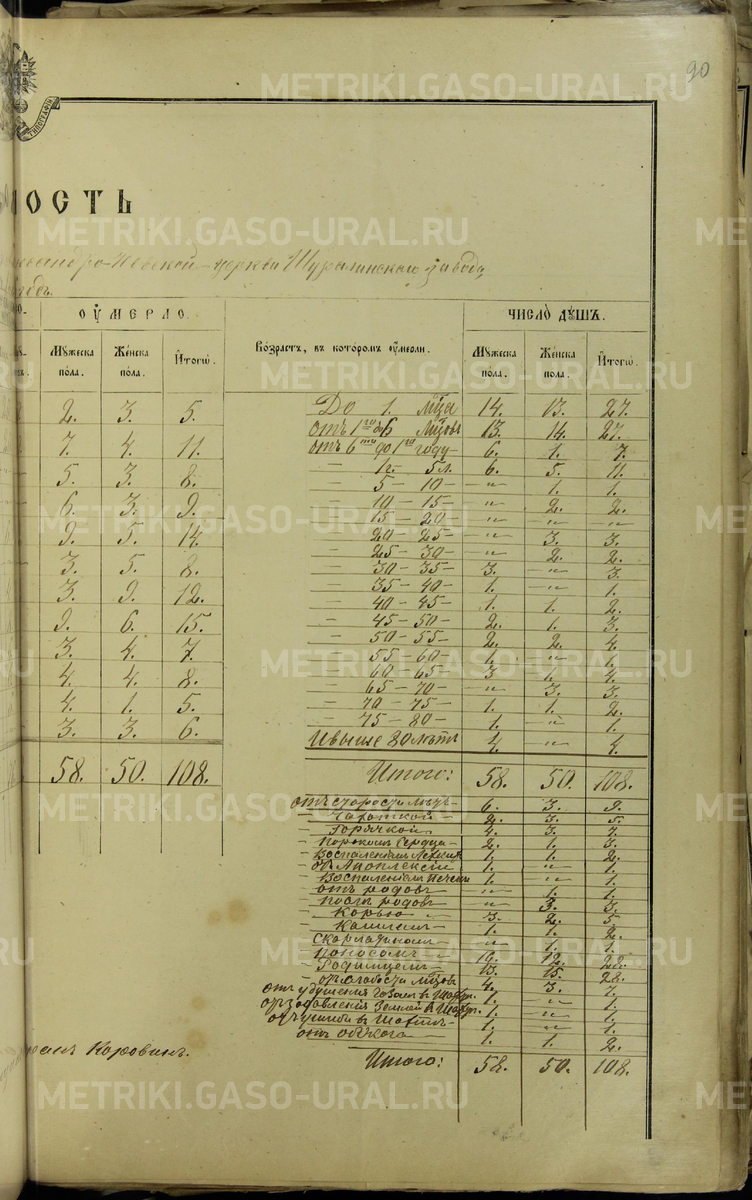 90
ТИПОГРАФІИ
МОСТЬ
METRIKI.GASO-URAL.RU
-Невской церкви Шуралинскаго завода
ОУМЕРЛО. ЧИСЛО ДУШЪ.
Мужеска пола. Женска пола. Итого. Возрастъ, въ которомъ оумерли. Мужеска пола. Женска пола. Итого.
2. 3. 5. До 1. мѣсѧца 14. 13. 27.
7. 4. 11. отъ 1го до 6 мѣсѧцовъ 13. 14. 27.
5. 3. 8. отъ 6ти до 1го году 6. 1. 7.
— 1г. 5л. 6. 5. 11.
6. 3. 9. — 5 — 10 — „ 1. 1.
— 10 — 15 — „ 2. 2.
9. 5. 14. — 15 — 20 — „ „ „
— 20 — 25 — „ 3. 3.
3. 5. 8. — 25 — 30 — „ 2. 2.
— 30 — 35 — 3. „ 3.
3. 9. 12. — 35 — 40 — 1. „ 1.
— 40 — 45 — 1. 1. 2.
9. 6. 15. — 45 — 50 — 2. 1. 3.
— 50 — 55 — 2. 2. 4.
3. 4. 7. — 55 — 60 — 1. „ 1.
4. 4. 8. — 60 — 65 — 3 1. 4.
— 65 — 70 — „ 3. 3.
4. 1. 5. — 70 — 75 — 1. 1. 2.
3. 3. 6. — 75 — 80 — 1. „ 1.
И выше 80 лѣтъ 4. „ 4.
58. 50. 108. Итого: 58. 50. 108.
отъ старости лѣтъ — 6. 3. 9.
— Чахоткой — 2. 3. 5.
— Горячкой — 4. 3. 7.
— Порокомъ сердца — 2. 1. 3.
— Воспаленіемъ легкихъ 1. 1. 2.
— от Апоплексіи — 1. „ 1.
— Воспаленіемъ печени 1. „ 1.
— отъ родовъ — „ 1. 1.
— послѣ родовъ „ 3. 3.
— Корью — 3. 2. 5.
— Кашлемъ — 1. 1. 2.
— Скарлатиною — „ 1. 1.
— Поносомъ — 12.
— Родимцемъ — 13. 15. 28.
— от слабости 4. 3. 7.
отъ удушенія газомъ в 1. „ 1.
Землей в 1. „ 1.
1. „ 1.
отъ 1. 1. 2.
Итого: 58. 50. 108.
Коровинъ.